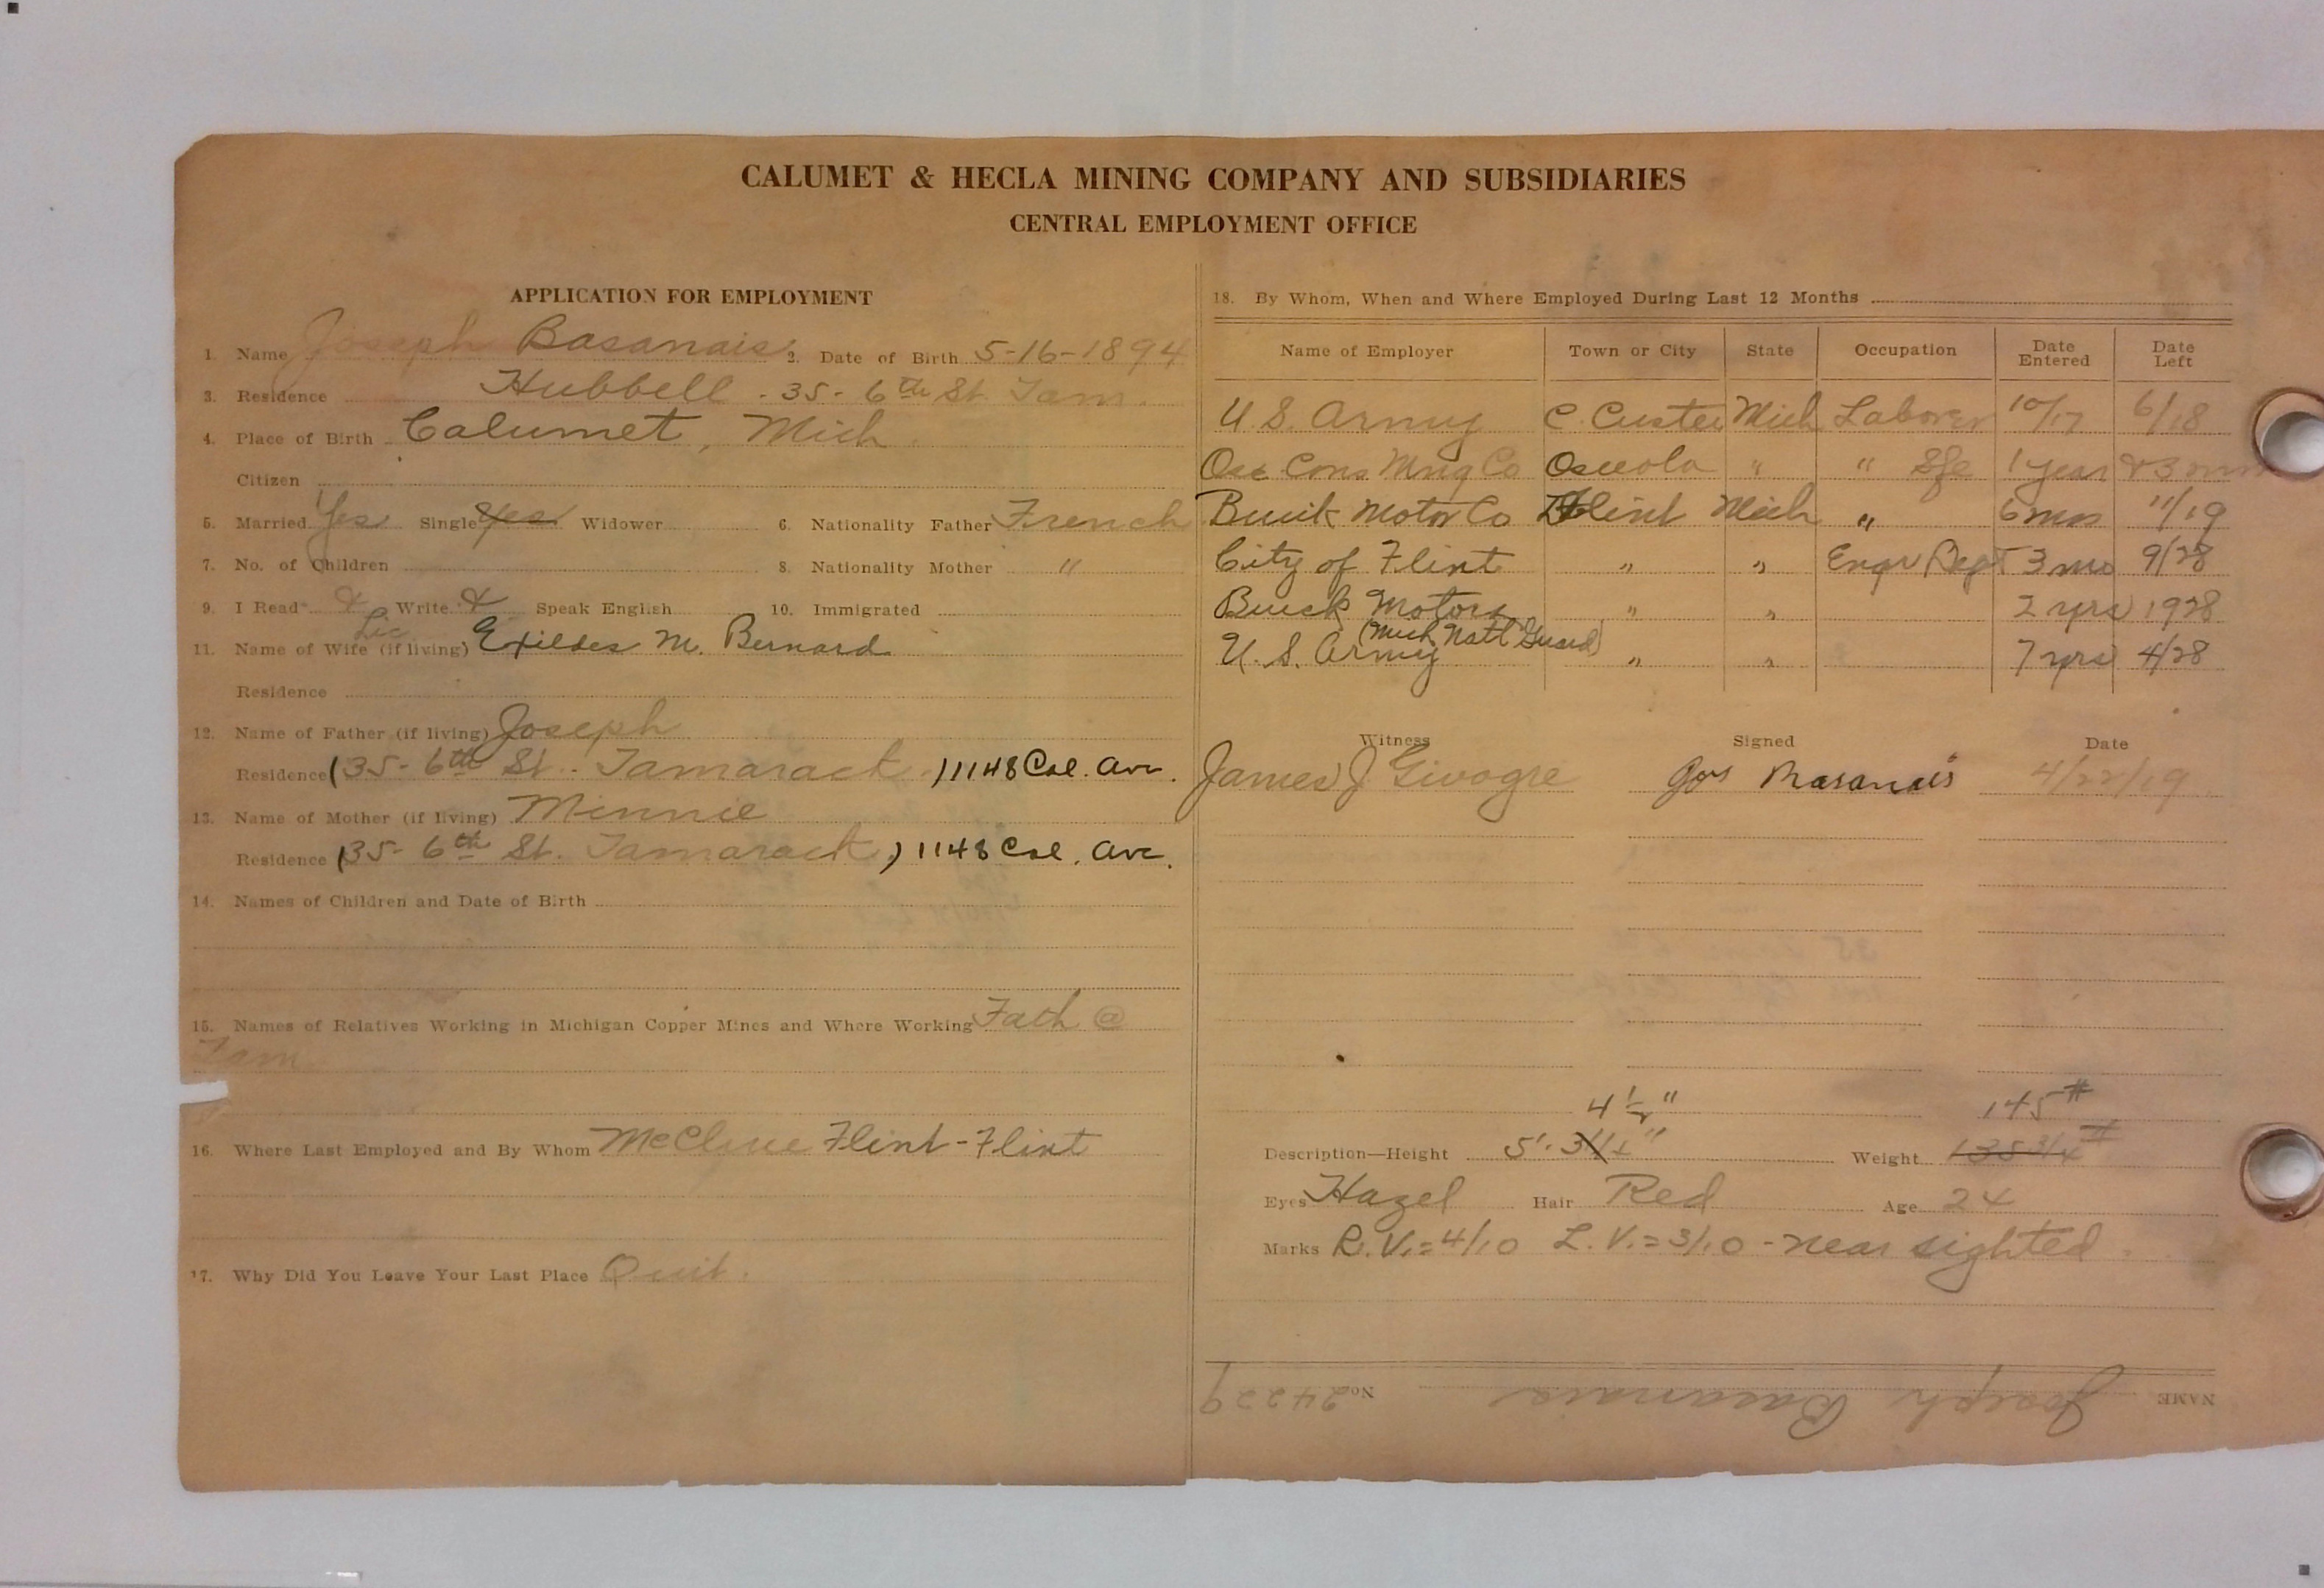 CALUMET & HECLA MINING COMPANY AND SUBSIDIARIES
CENTRAL EMPLOYMENT OFFICE
APPLICATION FOR EMPLOYMENT
1. Name Joseph Basanais 2. Date of Birth 5-16-1894
3. Residence Hubbell - 35 - 6th St. Tam.
4. Place of Birth Calumet, Mich.
Citizen
5. Married Yes Single Yes Widower 6. Nationality Father French
7. No. of Children 8. Nationality Mother "
9. I Read Write Speak English 10. Immigrated
11. Name of Wife (if living) Exildes M. Bernard
Residence
12. Name of Father (if living) Joseph
Residence (35 - 6th St. Tamarack.) 1148 Cal. Ave.
13. Name of Mother (if living) Minnie
Residence (35 - 6th St. Tamarack.) 1148 Cal. Ave.
14. Names of Children and Date of Birth
15. Names of Relatives Working in Michigan Copper Mines and Where Working Fath @
Tam
16. Where Last Employed and By Whom Flint - Flint
17. Why Did You Leave Your Last Place Quit.
18. By Whom, When and Where Employed During Last 12 Months
Name of Employer Town or City State Occupation Date Entered Date Left
U.S. Army C. Custer Mich Laborer 10/17 6/18
Osc Cons Mng Co Osceola " " Sfe 1 year & 3 mos
Buick Motor Co Flint Mich " 6 mos 11/19
City of Flint " " Engr Dept 3 mo 9/28
Buick Motors " " 2 yrs 1928
U.S. Army (Mich Natl Guard) " " 7 yrs 4/28
Witness Signed Date
James J Givogre Jos Basanais 4/22/19
4 1/2" 145#
Description—Height 5'. 3 1/2" Weight 135 3/4#
Eyes Hazel Hair Red Age 24
Marks R.V.=4/10 L.V.=3/10 - near sighted.
NAME Joseph Basanais No. 24229